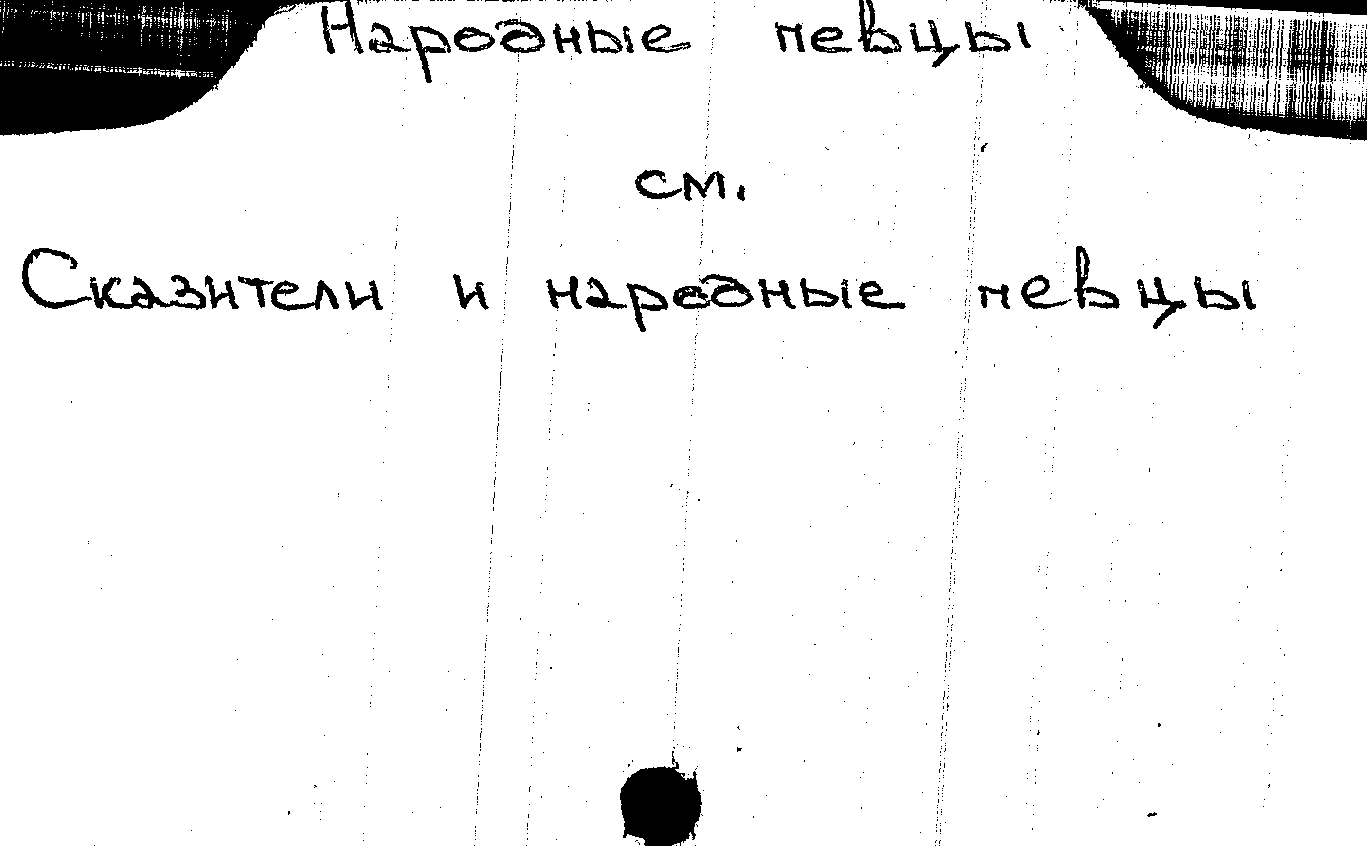 Народные певцы
см.
Сказители и народные певцы